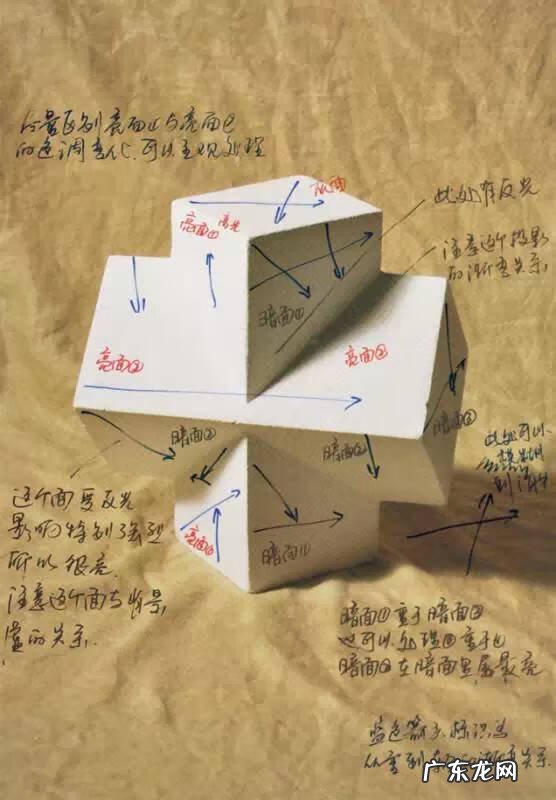 尽量区别亮面①与亮面②
的色调变化.可以主观处理
灰面
亮面①高光
此处有反光
注意这个投影
的渐变关系,
暗面①
亮面②
亮面②
暗面②
暗面②
暗面②
此处可以
模糊
亮面①
暗面①
这个面受反光
影响特别强烈
所以很亮.
注意这个面与背景
的关系.
暗面①重于暗面②
也可以处理②重于①
暗面②在暗面里属最亮
蓝色箭头标识为
从重到 渐变关系.
广东龙网